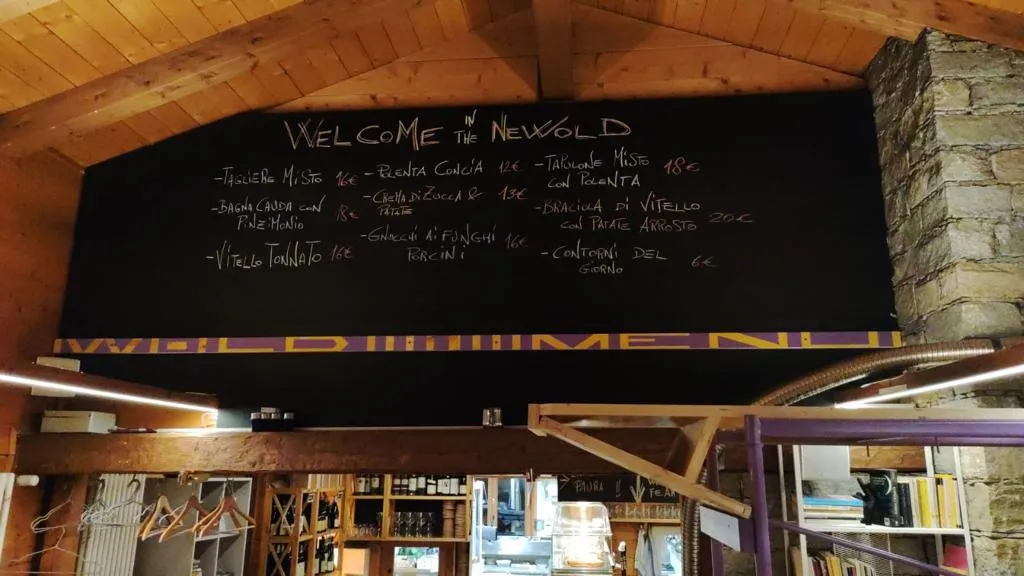 WELCOME IN THE NEWOLD
-TAGLIERE MISTO 16€
-BAGNA CAUDA CON
PINZIMONIO 18€
-VITELLO TONNATO 16€
-POLENTA CONCIA 12€
-CREMA DI ZUCCA & 13€
PATATE
-GNOCCHI AI FUNGHI 16€
PORCINI
-TAPULONE MISTO 18€
CON POLENTA
-BRACIOLA DI VITELLO
CON PATATE ARROSTO 20€
-CONTORNI DEL
GIORNO 6€
WILD MENU
PAURA !!